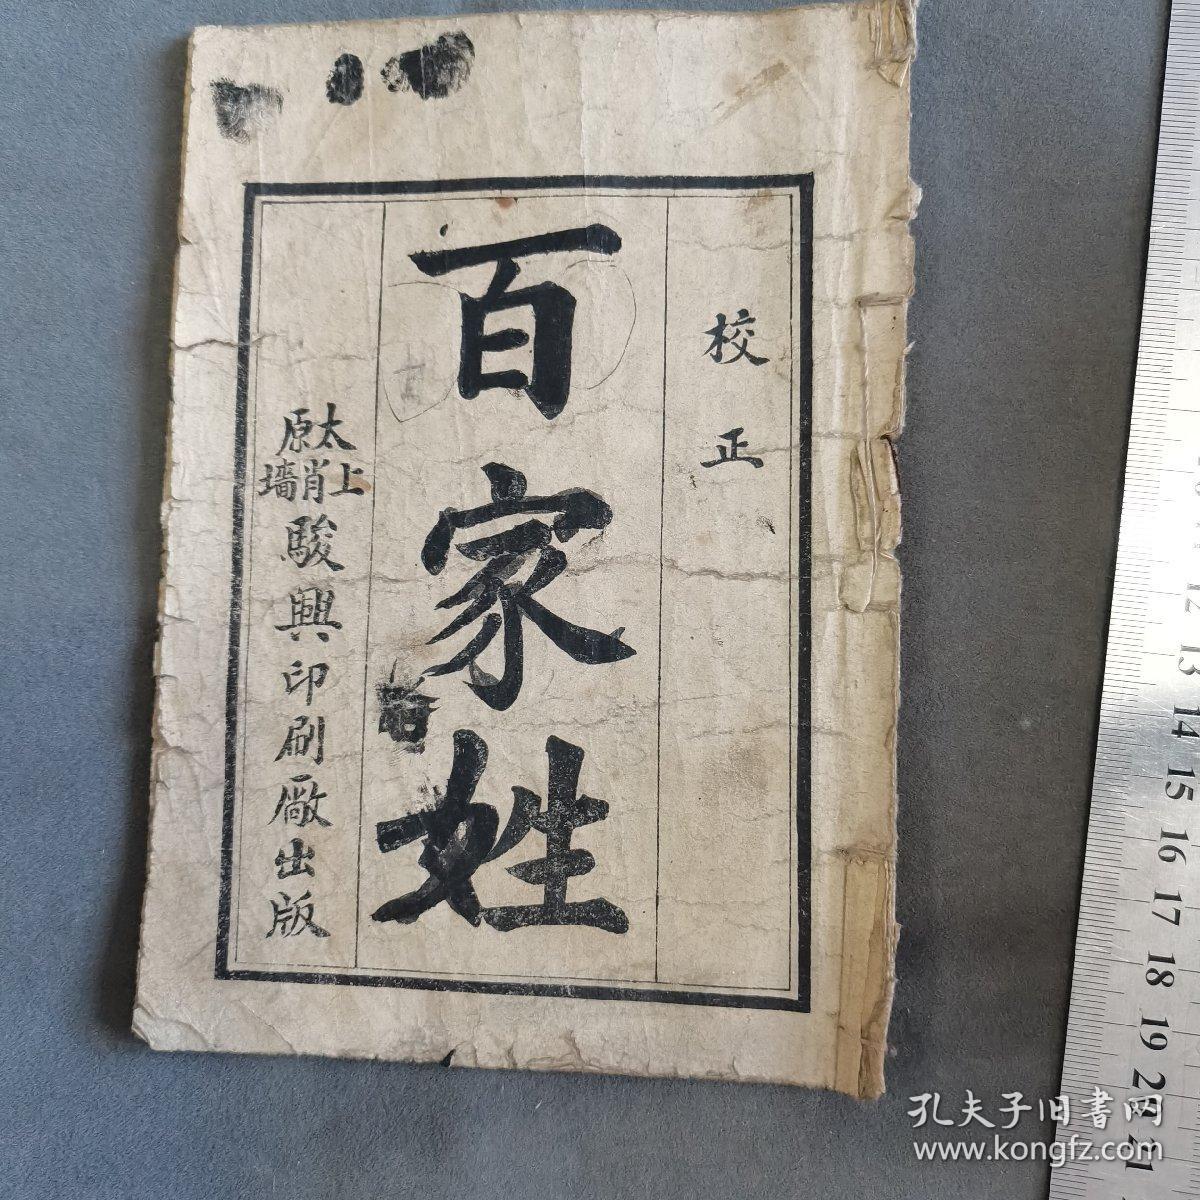 校正
百家姓
太原
上肖墙
駿興印刷廠出版
12 13 14 15 16 17 18 19 20 21
孔夫子旧書网
www.kongfz.com